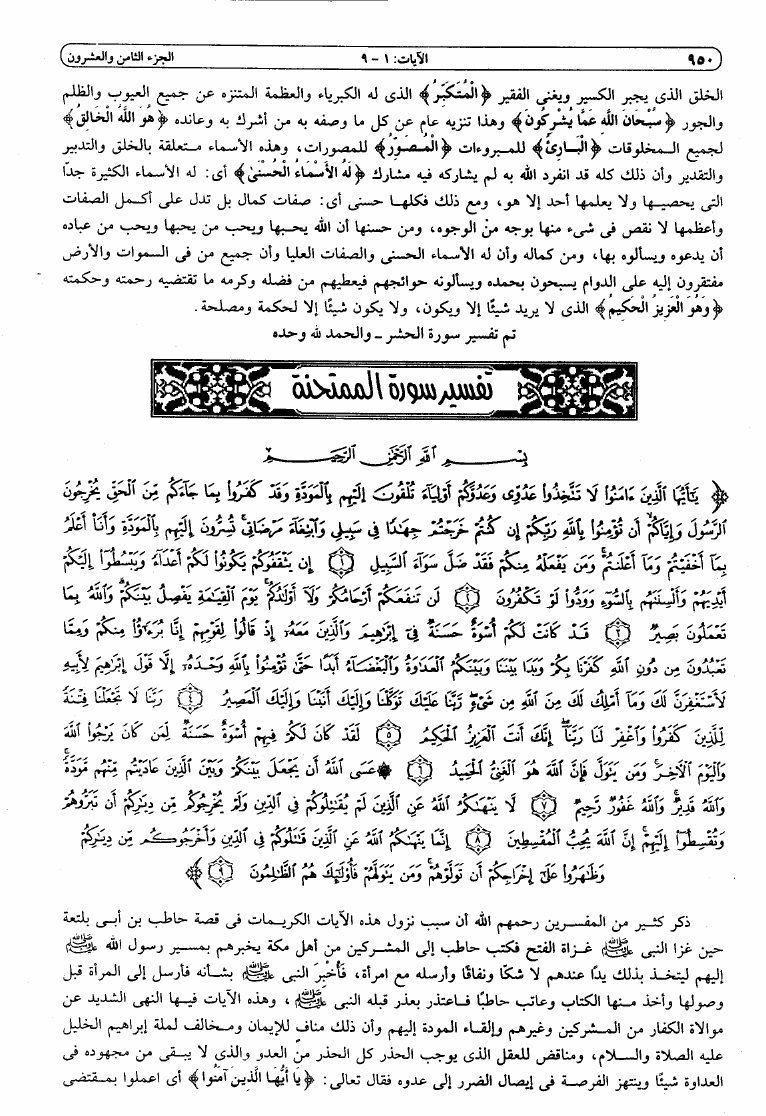 ٩٥٠ الآيات: ١ - ٩ الجزء الثامن والعشرون
الخلق الذى يجبر الكسير ويغنى الفقير ﴿الْمُتَكَبِّرُ﴾ الذى له الكبرياء والعظمة المتنزه عن جميع العيوب والظلم
والجور ﴿سُبْحَانَ اللَّهِ عَمَّا يُشْرِكُونَ﴾ وهذا تنزيه عام عن كل ما وصفه به من أشرك به وعانده ﴿هُوَ اللَّهُ الْخَالِقُ﴾
لجميع المخلوقات ﴿الْبَارِئُ﴾ للمبروءات ﴿الْمُصَوِّرُ﴾ للمصورات، وهذه الأسماء متعلقة بالخلق والتدبير
والتقدير وأن ذلك كله قد انفرد الله به لم يشاركه فيه مشارك ﴿لَهُ الأَسْمَاءُ الْحُسْنَىٰ﴾ أى: له الأسماء الكثيرة جدًا
التى يحصيها ولا يعلمها أحد إلا هو، ومع ذلك فكلها حسنى أى: صفات كمال بل تدل على أكمل الصفات
وأعظمها لا نقص فى شىء منها بوجه من الوجوه، ومن حسنها أن الله يحبها ويحب من يحبها ويحب من عباده
أن يدعوه ويسألوه بها، ومن كماله وأن له الأسماء الحسنى والصفات العليا وأن جميع من فى السموات والأرض
مفتقرون إليه على الدوام يسبحون بحمده ويسألونه حوائجهم فيعطيهم من فضله وكرمه ما تقتضيه رحمته وحكمته
﴿وَهُوَ الْعَزِيزُ الْحَكِيمُ﴾ الذى لا يريد شيئًا إلا ويكون، ولا يكون شيئًا إلا لحكمة ومصلحة.
تم تفسير سورة الحشر ـ والحمد لله وحده
تفسير سورة الممتحنة
بِسْمِ اللَّهِ الرَّحْمَٰنِ الرَّحِيمِ
﴿يَٰٓأَيُّهَا الَّذِينَ ءَامَنُوا لَا تَتَّخِذُوا عَدُوِّى وَعَدُوَّكُمْ أَوْلِيَآءَ تُلْقُونَ إِلَيْهِم بِالْمَوَدَّةِ وَقَدْ كَفَرُوا بِمَا جَآءَكُم مِّنَ الْحَقِّ يُخْرِجُونَ
الرَّسُولَ وَإِيَّاكُمْ أَن تُؤْمِنُوا بِاللَّهِ رَبِّكُمْ إِن كُنتُمْ خَرَجْتُمْ جِهَٰدًا فِى سَبِيلِى وَابْتِغَآءَ مَرْضَاتِى تُسِرُّونَ إِلَيْهِم بِالْمَوَدَّةِ وَأَنَا۠ أَعْلَمُ
بِمَآ أَخْفَيْتُمْ وَمَآ أَعْلَنتُمْ وَمَن يَفْعَلْهُ مِنكُمْ فَقَدْ ضَلَّ سَوَآءَ السَّبِيلِ ١ إِن يَثْقَفُوكُمْ يَكُونُوا لَكُمْ أَعْدَآءً وَيَبْسُطُوٓا إِلَيْكُمْ
أَيْدِيَهُمْ وَأَلْسِنَتَهُم بِالسُّوٓءِ وَوَدُّوا لَوْ تَكْفُرُونَ ٢ لَن تَنفَعَكُمْ أَرْحَامُكُمْ وَلَآ أَوْلَٰدُكُمْ يَوْمَ الْقِيَٰمَةِ يَفْصِلُ بَيْنَكُمْ وَاللَّهُ بِمَا
تَعْمَلُونَ بَصِيرٌ ٣ قَدْ كَانَتْ لَكُمْ أُسْوَةٌ حَسَنَةٌ فِىٓ إِبْرَٰهِيمَ وَالَّذِينَ مَعَهُۥٓ إِذْ قَالُوا لِقَوْمِهِمْ إِنَّا بُرَءَٰٓؤُا مِنكُمْ وَمِمَّا
تَعْبُدُونَ مِن دُونِ اللَّهِ كَفَرْنَا بِكُمْ وَبَدَا بَيْنَنَا وَبَيْنَكُمُ الْعَدَٰوَةُ وَالْبَغْضَآءُ أَبَدًا حَتَّىٰ تُؤْمِنُوا بِاللَّهِ وَحْدَهُۥٓ إِلَّا قَوْلَ إِبْرَٰهِيمَ لِأَبِيهِ
لَأَسْتَغْفِرَنَّ لَكَ وَمَآ أَمْلِكُ لَكَ مِنَ اللَّهِ مِن شَىْءٍ رَّبَّنَا عَلَيْكَ تَوَكَّلْنَا وَإِلَيْكَ أَنَبْنَا وَإِلَيْكَ الْمَصِيرُ ٤ رَبَّنَا لَا تَجْعَلْنَا فِتْنَةً
لِّلَّذِينَ كَفَرُوا وَاغْفِرْ لَنَا رَبَّنَآ إِنَّكَ أَنتَ الْعَزِيزُ الْحَكِيمُ ٥ لَقَدْ كَانَ لَكُمْ فِيهِمْ أُسْوَةٌ حَسَنَةٌ لِّمَن كَانَ يَرْجُوا اللَّهَ
وَالْيَوْمَ الْءَاخِرَ وَمَن يَتَوَلَّ فَإِنَّ اللَّهَ هُوَ الْغَنِىُّ الْحَمِيدُ ٦ ۞ عَسَى اللَّهُ أَن يَجْعَلَ بَيْنَكُمْ وَبَيْنَ الَّذِينَ عَادَيْتُم مِّنْهُم مَّوَدَّةً
وَاللَّهُ قَدِيرٌ وَاللَّهُ غَفُورٌ رَّحِيمٌ ٧ لَّا يَنْهَىٰكُمُ اللَّهُ عَنِ الَّذِينَ لَمْ يُقَٰتِلُوكُمْ فِى الدِّينِ وَلَمْ يُخْرِجُوكُم مِّن دِيَٰرِكُمْ أَن تَبَرُّوهُمْ
وَتُقْسِطُوٓا إِلَيْهِمْ إِنَّ اللَّهَ يُحِبُّ الْمُقْسِطِينَ ٨ إِنَّمَا يَنْهَىٰكُمُ اللَّهُ عَنِ الَّذِينَ قَٰتَلُوكُمْ فِى الدِّينِ وَأَخْرَجُوكُم مِّن دِيَٰرِكُمْ
وَظَٰهَرُوا عَلَىٰٓ إِخْرَاجِكُمْ أَن تَوَلَّوْهُمْ وَمَن يَتَوَلَّهُمْ فَأُولَٰٓئِكَ هُمُ الظَّٰلِمُونَ ٩﴾
ذكر كثير من المفسرين رحمهم الله أن سبب نزول هذه الآيات الكريمات فى قصة حاطب بن أبى بلتعة
حين غزا النبى ﷺ غزاة الفتح فكتب حاطب إلى المشركين من أهل مكة يخبرهم بمسير رسول الله ﷺ
إليهم ليتخذ بذلك يدًا عندهم لا شكًا ونفاقًا وأرسله مع امرأة، فأُخبِرَ النبى ﷺ بشأنه فأرسل إلى المرأة قبل
وصولها وأخذ منها الكتاب وعاتب حاطبًا فاعتذر بعذر قبله النبى ﷺ، وهذه الآيات فيها النهى الشديد عن
موالاة الكفار من المشركين وغيرهم وإلقاء المودة إليهم وأن ذلك منافٍ للإيمان ومخالف لملة إبراهيم الخليل
عليه الصلاة والسلام، ومناقض للعقل الذى يوجب الحذر كل الحذر من العدو والذى لا يبقى من مجهوده فى
العداوة شيئًا وينتهز الفرصة فى إيصال الضرر إلى عدوه فقال تعالى: ﴿يَا أَيُّهَا الَّذِينَ آمَنُوا﴾ أى اعملوا بمقتضى